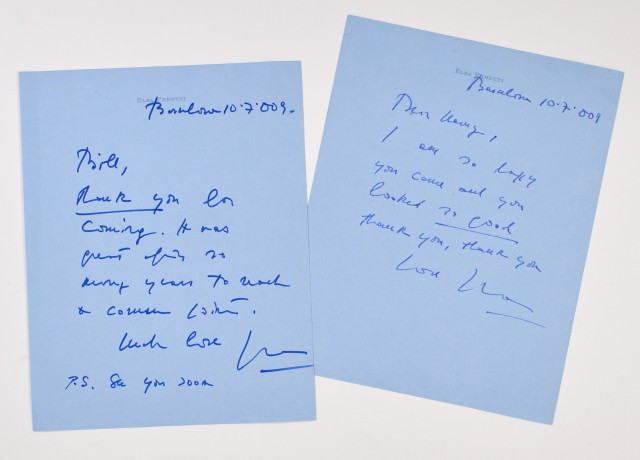 ELSA PERETTI
Barcelona 10·7·009-
Bill,
Thank you for
coming. It was
great after so
many years to reach
a common point.
Much love Elsa
P.S. See you soon
ELSA PERETTI
Barcelona 10·7·009
Dear
I am so happy
you came and you
looked so good
thank you, thank you
Love Elsa